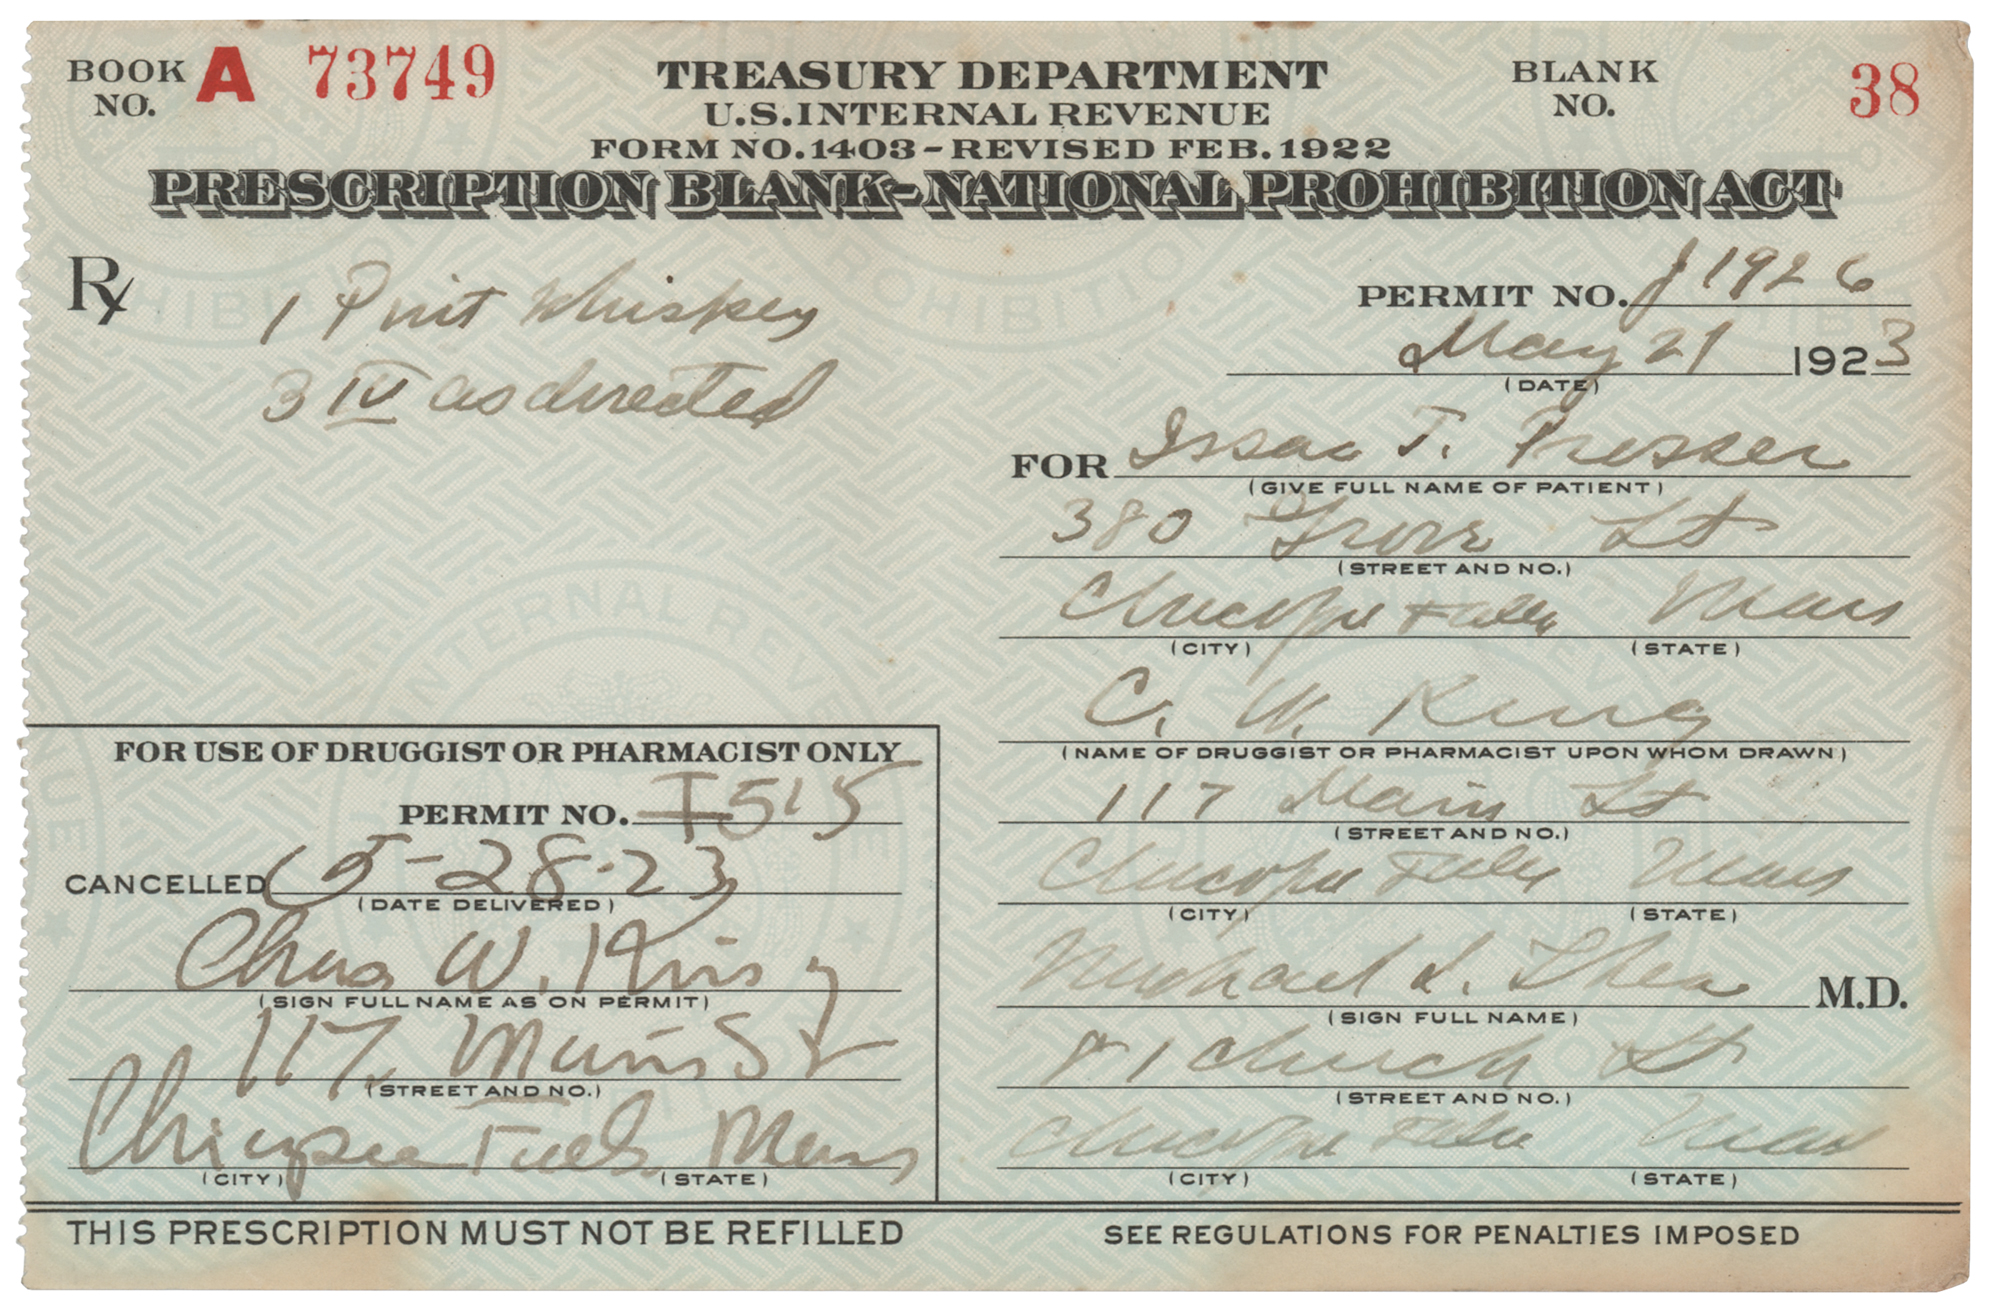 BOOK NO. A 73749
TREASURY DEPARTMENT
U.S. INTERNAL REVENUE
FORM NO. 1403 - REVISED FEB. 1922
BLANK NO. 38
PRESCRIPTION BLANK - NATIONAL PROHIBITION ACT
Rx
1 Pint Whiskey
3 IV as directed
PERMIT NO. J 1926
May 21 1923
(DATE)
FOR Issac T. Presser
(GIVE FULL NAME OF PATIENT)
380 Grove St
(STREET AND NO.)
Chicopee Falls Mass
(CITY) (STATE)
C. W. King
(NAME OF DRUGGIST OR PHARMACIST UPON WHOM DRAWN)
117 Main St
(STREET AND NO.)
Chicopee Falls Mass
(CITY) (STATE)
Michael J. Shea M.D.
(SIGN FULL NAME)
81 Church St
(STREET AND NO.)
Chicopee Falls Mass
(CITY) (STATE)
FOR USE OF DRUGGIST OR PHARMACIST ONLY
PERMIT NO. I-515
CANCELLED 5-28-23
(DATE DELIVERED)
Chas W. King
(SIGN FULL NAME AS ON PERMIT)
117 Main St
(STREET AND NO.)
Chicopee Falls Mass
(CITY) (STATE)
THIS PRESCRIPTION MUST NOT BE REFILLED
SEE REGULATIONS FOR PENALTIES IMPOSED